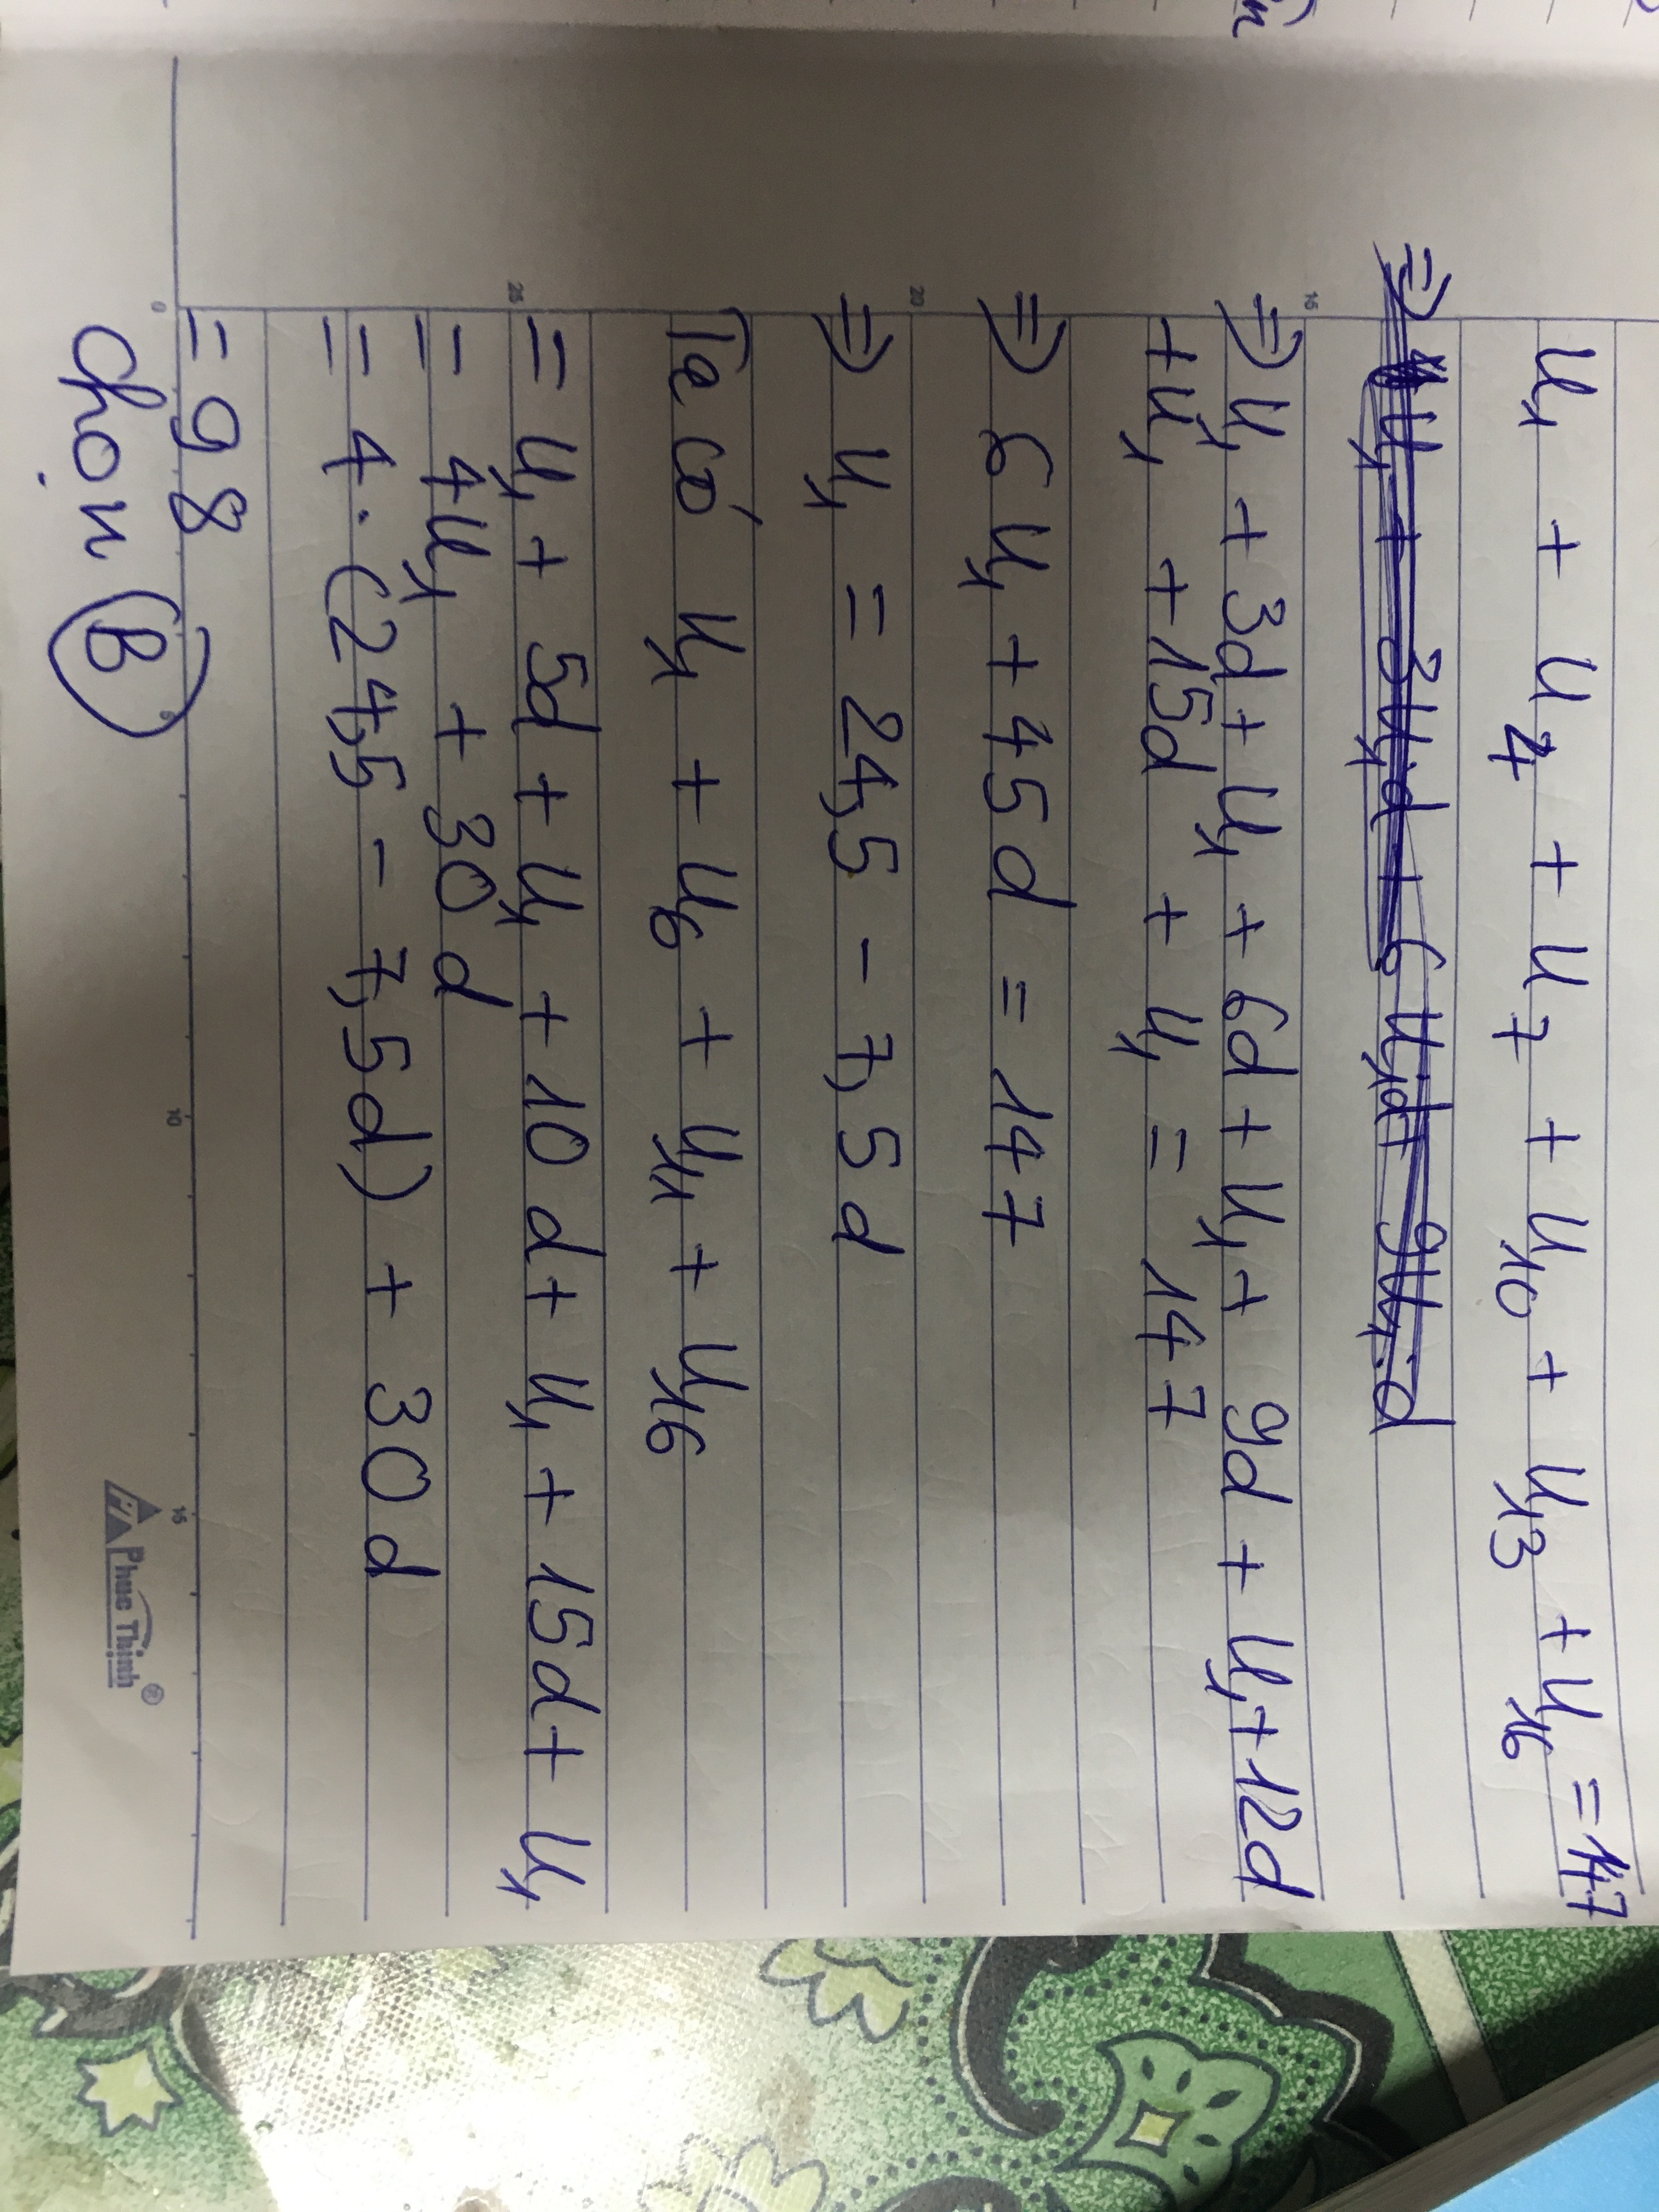 u₁ + u₄ + u₇ + u₁₀ + u₁₃ + u₁₆ = 147
⇒ u₁ + 3u₁d + 6u₁d + 9u₁.d
⇒ u₁ + 3d + u₁ + 6d + u₁ + 9d + u₁ + 12d
+ u₁ + 15d + u₁ = 147
⇒ 6u₁ + 45d = 147
⇒ u₁ = 24,5 - 7,5d
Ta có u₁ + u₆ + u₁₁ + u₁₆
= u₁ + 5d + u₁ + 10d + u₁ + 15d + u₁
= 4u₁ + 30d
= 4.(24,5 - 7,5d) + 30d
= 98
chọn B
15
20
25
0
5
10
15
Phuc Thịnh®